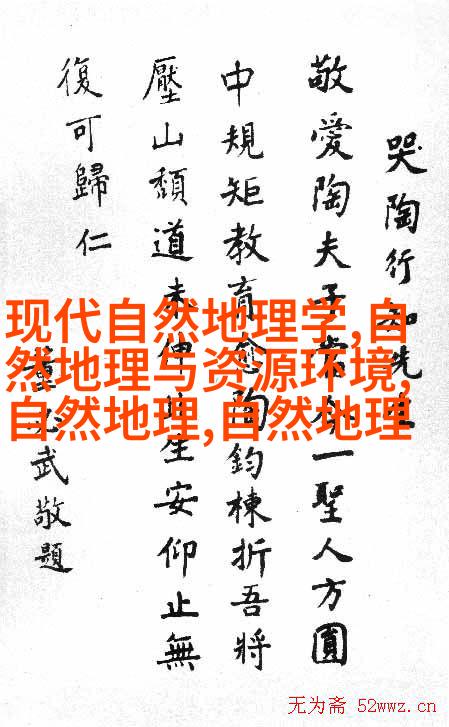 哭陶行知先生
敬愛陶夫子當今一聖人方圓
中規矩教育愈陶鈞棟折吾將
壓山頹道未伸此生安仰止無
復可歸仁
董必武敬題
现代自然地理学,自
然地理与资源环境,
自然地理,自然地理
无为斋 52wwz.cn